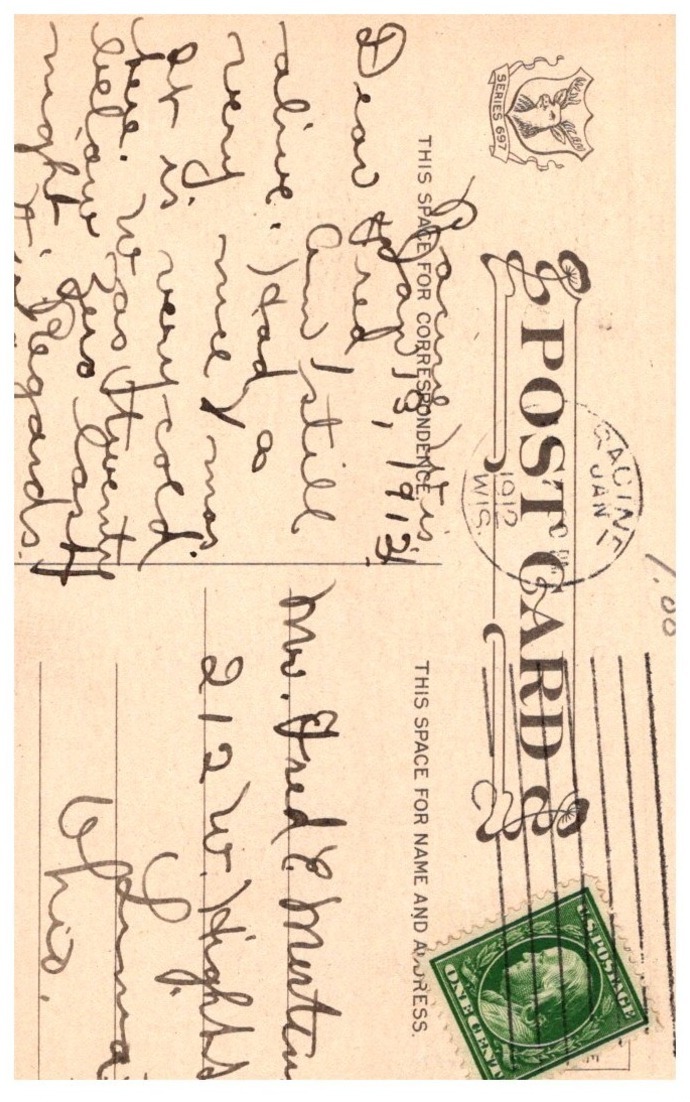 SERIES 697
POST CARD
THIS SPACE FOR CORRESPONDENCE
THIS SPACE FOR NAME AND ADDRESS.
RACINE
JAN
1912
WIS.
U.S. POSTAGE
ONE CENT
1.00
Racine, Wis.
Jan 13, 1912
Dear Fred
am I still
alive. Had a
very nice
It is very cold
here. was twenty
below zero last
night
Regards.
Mr. Fred C.
212 W. High
Lima
Ohio.